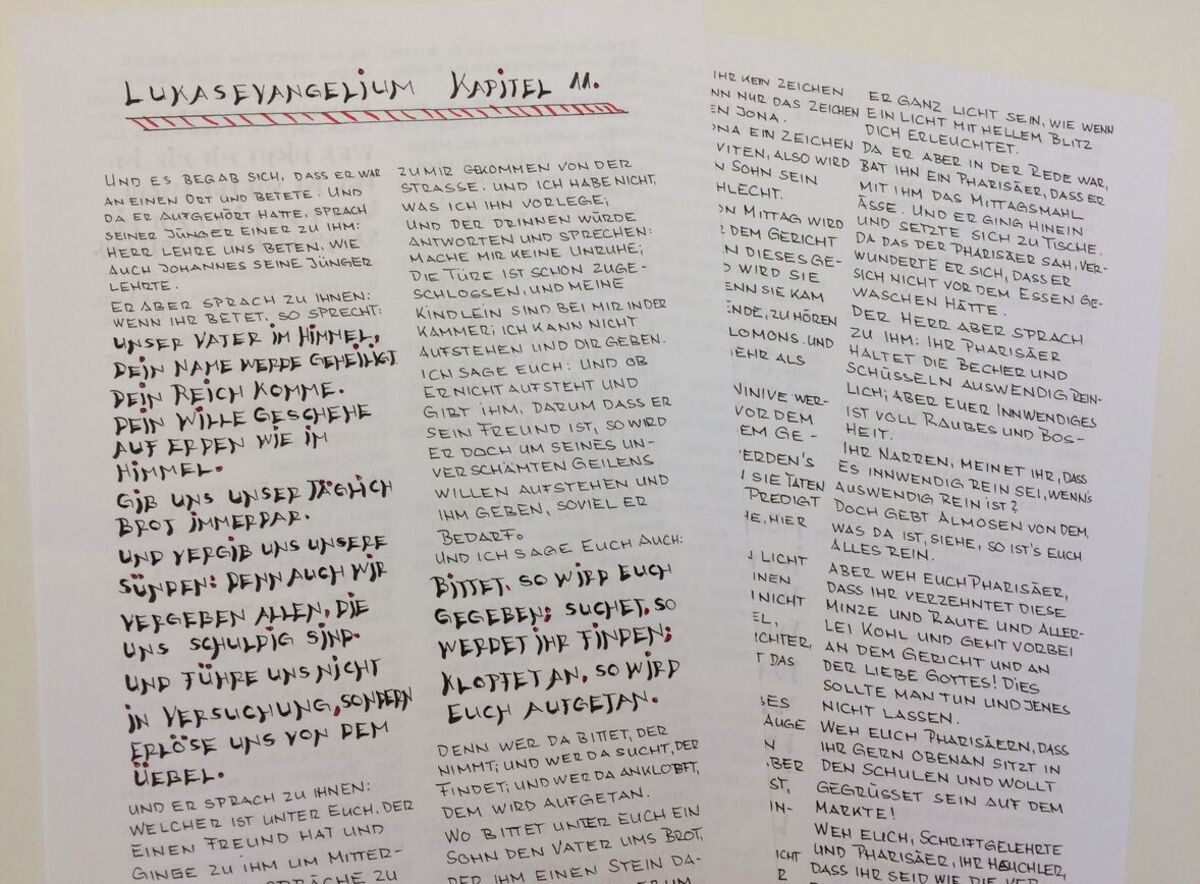 LUKASEVANGELIUM KAPITEL 11.
UND ES BEGAB SICH, DASS ER WAR
AN EINEN ORT UND BETETE. UND
DA ER AUFGEHÖRT HATTE, SPRACH
SEINER JÜNGER EINER ZU IHM:
HERR LEHRE UNS BETEN, WIE
AUCH JOHANNES SEINE JÜNGER
LEHRTE.
ER ABER SPRACH ZU IHNEN:
WENN IHR BETET, SO SPRECHT:
UNSER VATER IM HIMMEL,
DEIN NAME WERDE GEHEILIGT
DEIN REICH KOMME.
DEIN WILLE GESCHEHE
AUF ERDEN WIE IM
HIMMEL.
GIB UNS UNSER TÄGLICH
BROT IMMERDAR.
UND VERGIB UNS UNSERE
SÜNDEN: DENN AUCH WIR
VERGEBEN ALLEN, DIE
UNS SCHULDIG SIND.
UND FÜHRE UNS NICHT
IN VERSUCHUNG, SONDERN
ERLÖSE UNS VON DEM
ÜEBEL.
UND ER SPRACH ZU IHNEN:
WELCHER IST UNTER EUCH, DER
EINEN FREUND HAT UND
GINGE ZU IHM UM MITTER-
SPRÄCHE ZU
ZU MIR GEKOMMEN VON DER
STRASSE. UND ICH HABE NICHT,
WAS ICH IHN VORLEGE;
UND DER DRINNEN WÜRDE
ANTWORTEN UND SPRECHEN:
MACHE MIR KEINE UNRUHE;
DIE TÜRE IST SCHON ZUGE-
SCHLOSSEN, UND MEINE
KINDLEIN SIND BEI MIR IN DER
KAMMER; ICH KANN NICHT
AUFSTEHEN UND DIR GEBEN.
ICH SAGE EUCH: UND OB
ER NICHT AUFSTEHT UND
GIBT IHM, DARUM DASS ER
SEIN FREUND IST, SO WIRD
ER DOCH UM SEINES UN-
VERSCHÄMTEN GEILENS
WILLEN AUFSTEHEN UND
IHM GEBEN, SOVIEL ER
BEDARF.
UND ICH SAGE EUCH AUCH:
BITTET, SO WIRD EUCH
GEGEBEN; SUCHET, SO
WERDET IHR FINDEN;
KLOPFET AN, SO WIRD
EUCH AUFGETAN.
DENN WER DA BITTET, DER
NIMMT; UND WER DA SUCHT, DER
FINDET; UND WER DA ANKLOBFT,
DEM WIRD AUFGETAN.
WO BITTET UNTER EUCH EIN
SOHN DEN VATER UMS BROT,
DER IHM EINEN STEIN DA-
IHR KEIN ZEICHEN
NN NUR DAS ZEICHEN
EN JONA.
ONA EIN ZEICHEN
VITEN, ALSO WIRD
N SOHN SEIN
HLECHT.
ON MITTAG WIRD
R DEM GERICHT
EN DIESES GE-
D WIRD SIE
ENN SIE KAM
ENDE, ZU HÖREN
LOMONS. UND
MEHR ALS
NINIVE WER-
VOR DEM
EM GE-
ERDEN'S
SIE TATEN
PREDIGT
HE, HIER
LICHT
INEN
NICHT
EL,
ICHTER,
T DAS
BES
AUGE
N
ABER
ST,
IN-
ICHT
R
ER GANZ LICHT SEIN, WIE WENN
EIN LICHT MIT HELLEM BLITZ
DICH ERLEUCHTET.
DA ER ABER IN DER REDE WAR,
BAT IHN EIN PHARISÄER, DASS ER
MIT IHM DAS MITTAGSMAHL
ÄSSE. UND ER GING HINEIN
UND SETZTE SICH ZU TISCHE.
DA DAS DER PHARISÄER SAH, VER-
WUNDERTE ER SICH, DASS ER
SICH NICHT VOR DEM ESSEN GE-
WASCHEN HÄTTE.
DER HERR ABER SPRACH
ZU IHM: IHR PHARISÄER
HALTET DIE BECHER UND
SCHÜSSELN AUSWENDIG REIN-
LICH; ABER EUER INNWENDIGES
IST VOLL RAUBES UND BOS-
HEIT.
IHR NARREN, MEINET IHR, DASS
ES INNWENDIG REIN SEI, WENN'S
AUSWENDIG REIN IST?
DOCH GEBT ALMOSEN VON DEM,
WAS DA IST, SIEHE, SO IST'S EUCH
ALLES REIN.
ABER WEH EUCH PHARISÄER,
DASS IHR VERZEHNTET DIESE
MINZE UND RAUTE UND ALLER-
LEI KOHL UND GEHT VORBEI
AN DEM GERICHT UND AN
DER LIEBE GOTTES! DIES
SOLLTE MAN TUN UND JENES
NICHT LASSEN.
WEH EUCH PHARISÄERN, DASS
IHR GERN OBENAN SITZT IN
DEN SCHULEN UND WOLLT
GEGRÜSSET SEIN AUF DEM
MARKTE!
WEH EUCH, SCHRIFTGELEHRTE
UND PHARISÄER, IHR HEUCHLER,
DASS IHR SEID WIE DIE VER